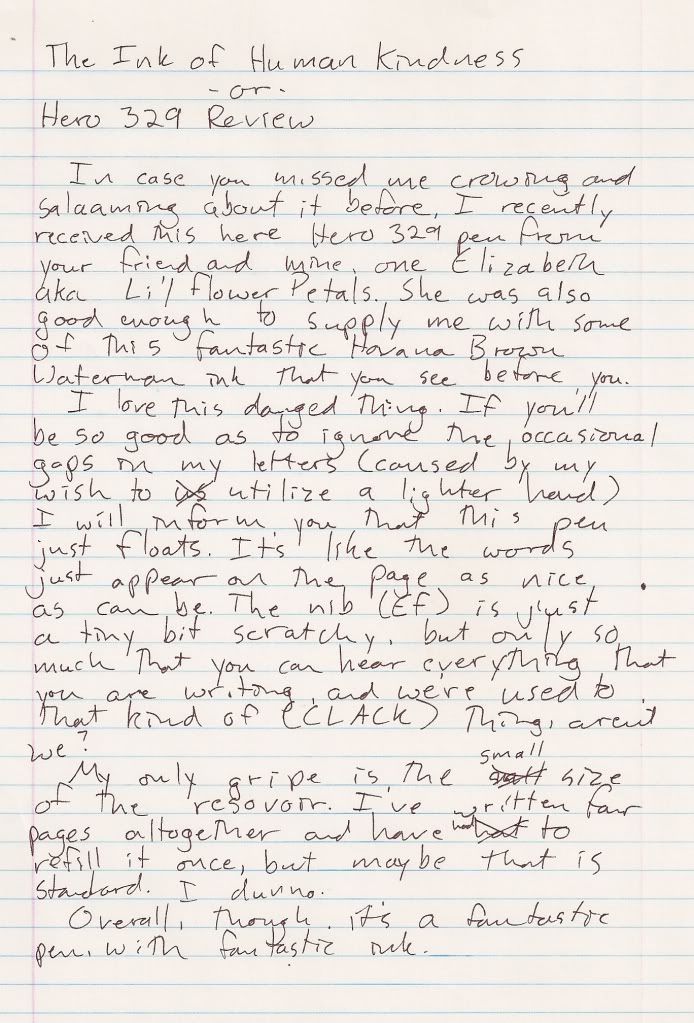 The Ink of Human Kindness
- or -
Hero 329 Review
In case you missed me crowing and
salaaming about it before, I recently
received this here Hero 329 pen from
your friend and mine, one Elizabeth
aka Li'l Flower Petals. She was also
good enough to supply me with some
of this fantastic Havana Brown
Waterman ink that you see before you.
I love this danged thing. If you'll
be so good as to ignore the occasional
gaps in my letters (caused by my
wish to us utilize a lighter hand)
I will inform you that this pen
just floats. It's like the words
just appear on the page as nice
as can be. The nib (EF) is just
a tiny bit scratchy, but only so
much that you can hear everything that
you are writing, and we're used to
that kind of (CLACK) thing, aren't
we?
My only gripe is the small size
of the resovoir. I've written four
pages altogether and have had to
refill it once, but maybe that is
standard. I dunno.
Overall, though, it's a fantastic
pen, with fantastic ink.